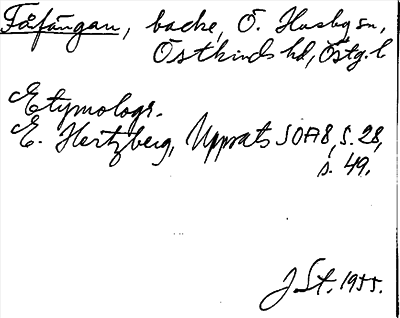 Fåfängan, backe, Ö. Husby sn,
Östkinds hd, Östg. l
Etymologs.
E. Hertzberg, Uppsats SOÅ8, S. 28,
s. 49.
J St. 1955.